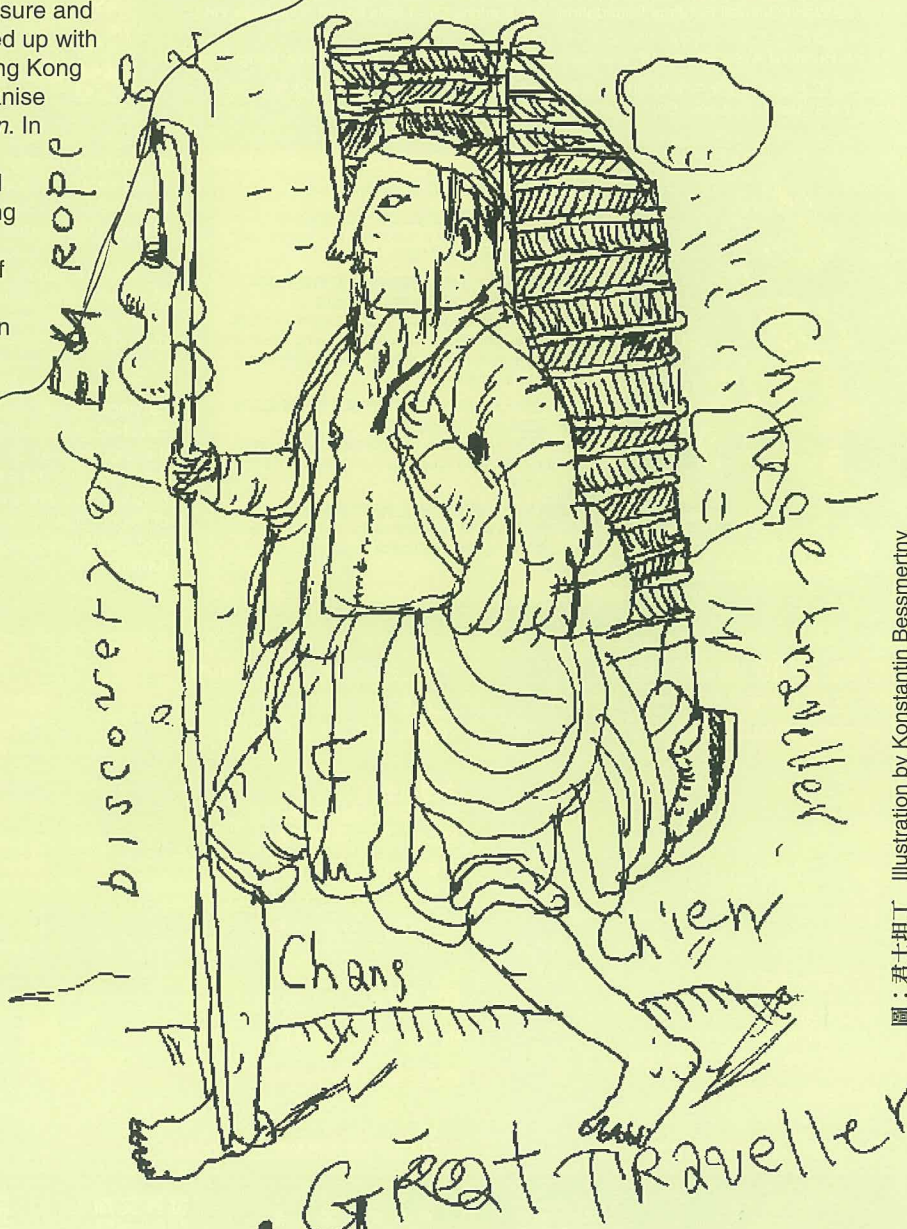 sure and
ed up with
ng Kong
anise
n. In
ng
f
n
Discovery of
EUROPE
Chang
the traveller
Chang
Ch'ien
Great TRaveller
圖：君士坦丁 Illustration by Konstantin Bessmertny